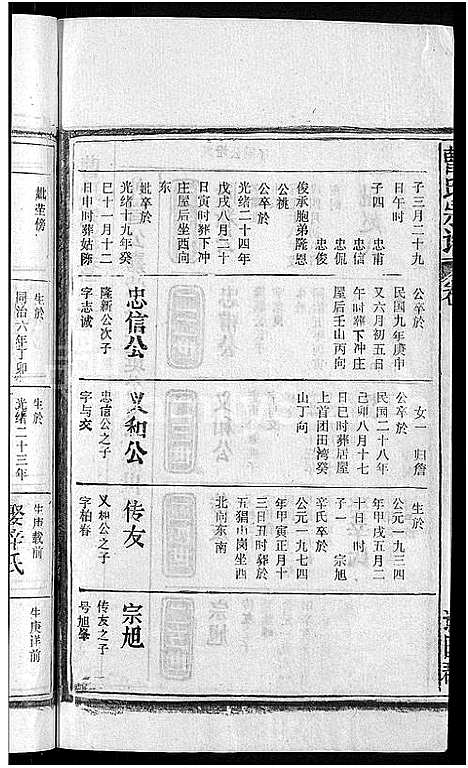 子三月二十九
日午时
子四 忠甫
忠信
忠侃
忠俊
俊承胞弟隆恩
公桃
公卒於
光绪二十四年
戊戌八月二十
日寅时葬下冲
庄屋后坐西向
东
妣卒於
光绪十九年癸
巳十一月十二
日申时葬姑陈
妣茔傍
公卒於
民国九年庚申
又六月初五日
午时葬下冲庄
屋后壬山丙向
忠信公
隆新公次子
字志诚
生於
同治六年丁卯
女一 归詹
公卒於
民国二十八年
己卯八月十七
日巳时葬居屋
上首团田湾癸
山丁向
义和公
忠信公之子
字与交
生於
光绪二十三年
生於
公元一九三四
年甲戌五月二
十日 时
子一 宗旭
辛氏卒於
公元一九七四
年甲寅正月十
三日丑时葬於
五猖山岗坐西
北向东南
传友
义和公之子
字柏春
生庚载前
娶辛氏
宗旭
传友之子
号旭峯
生庚详前